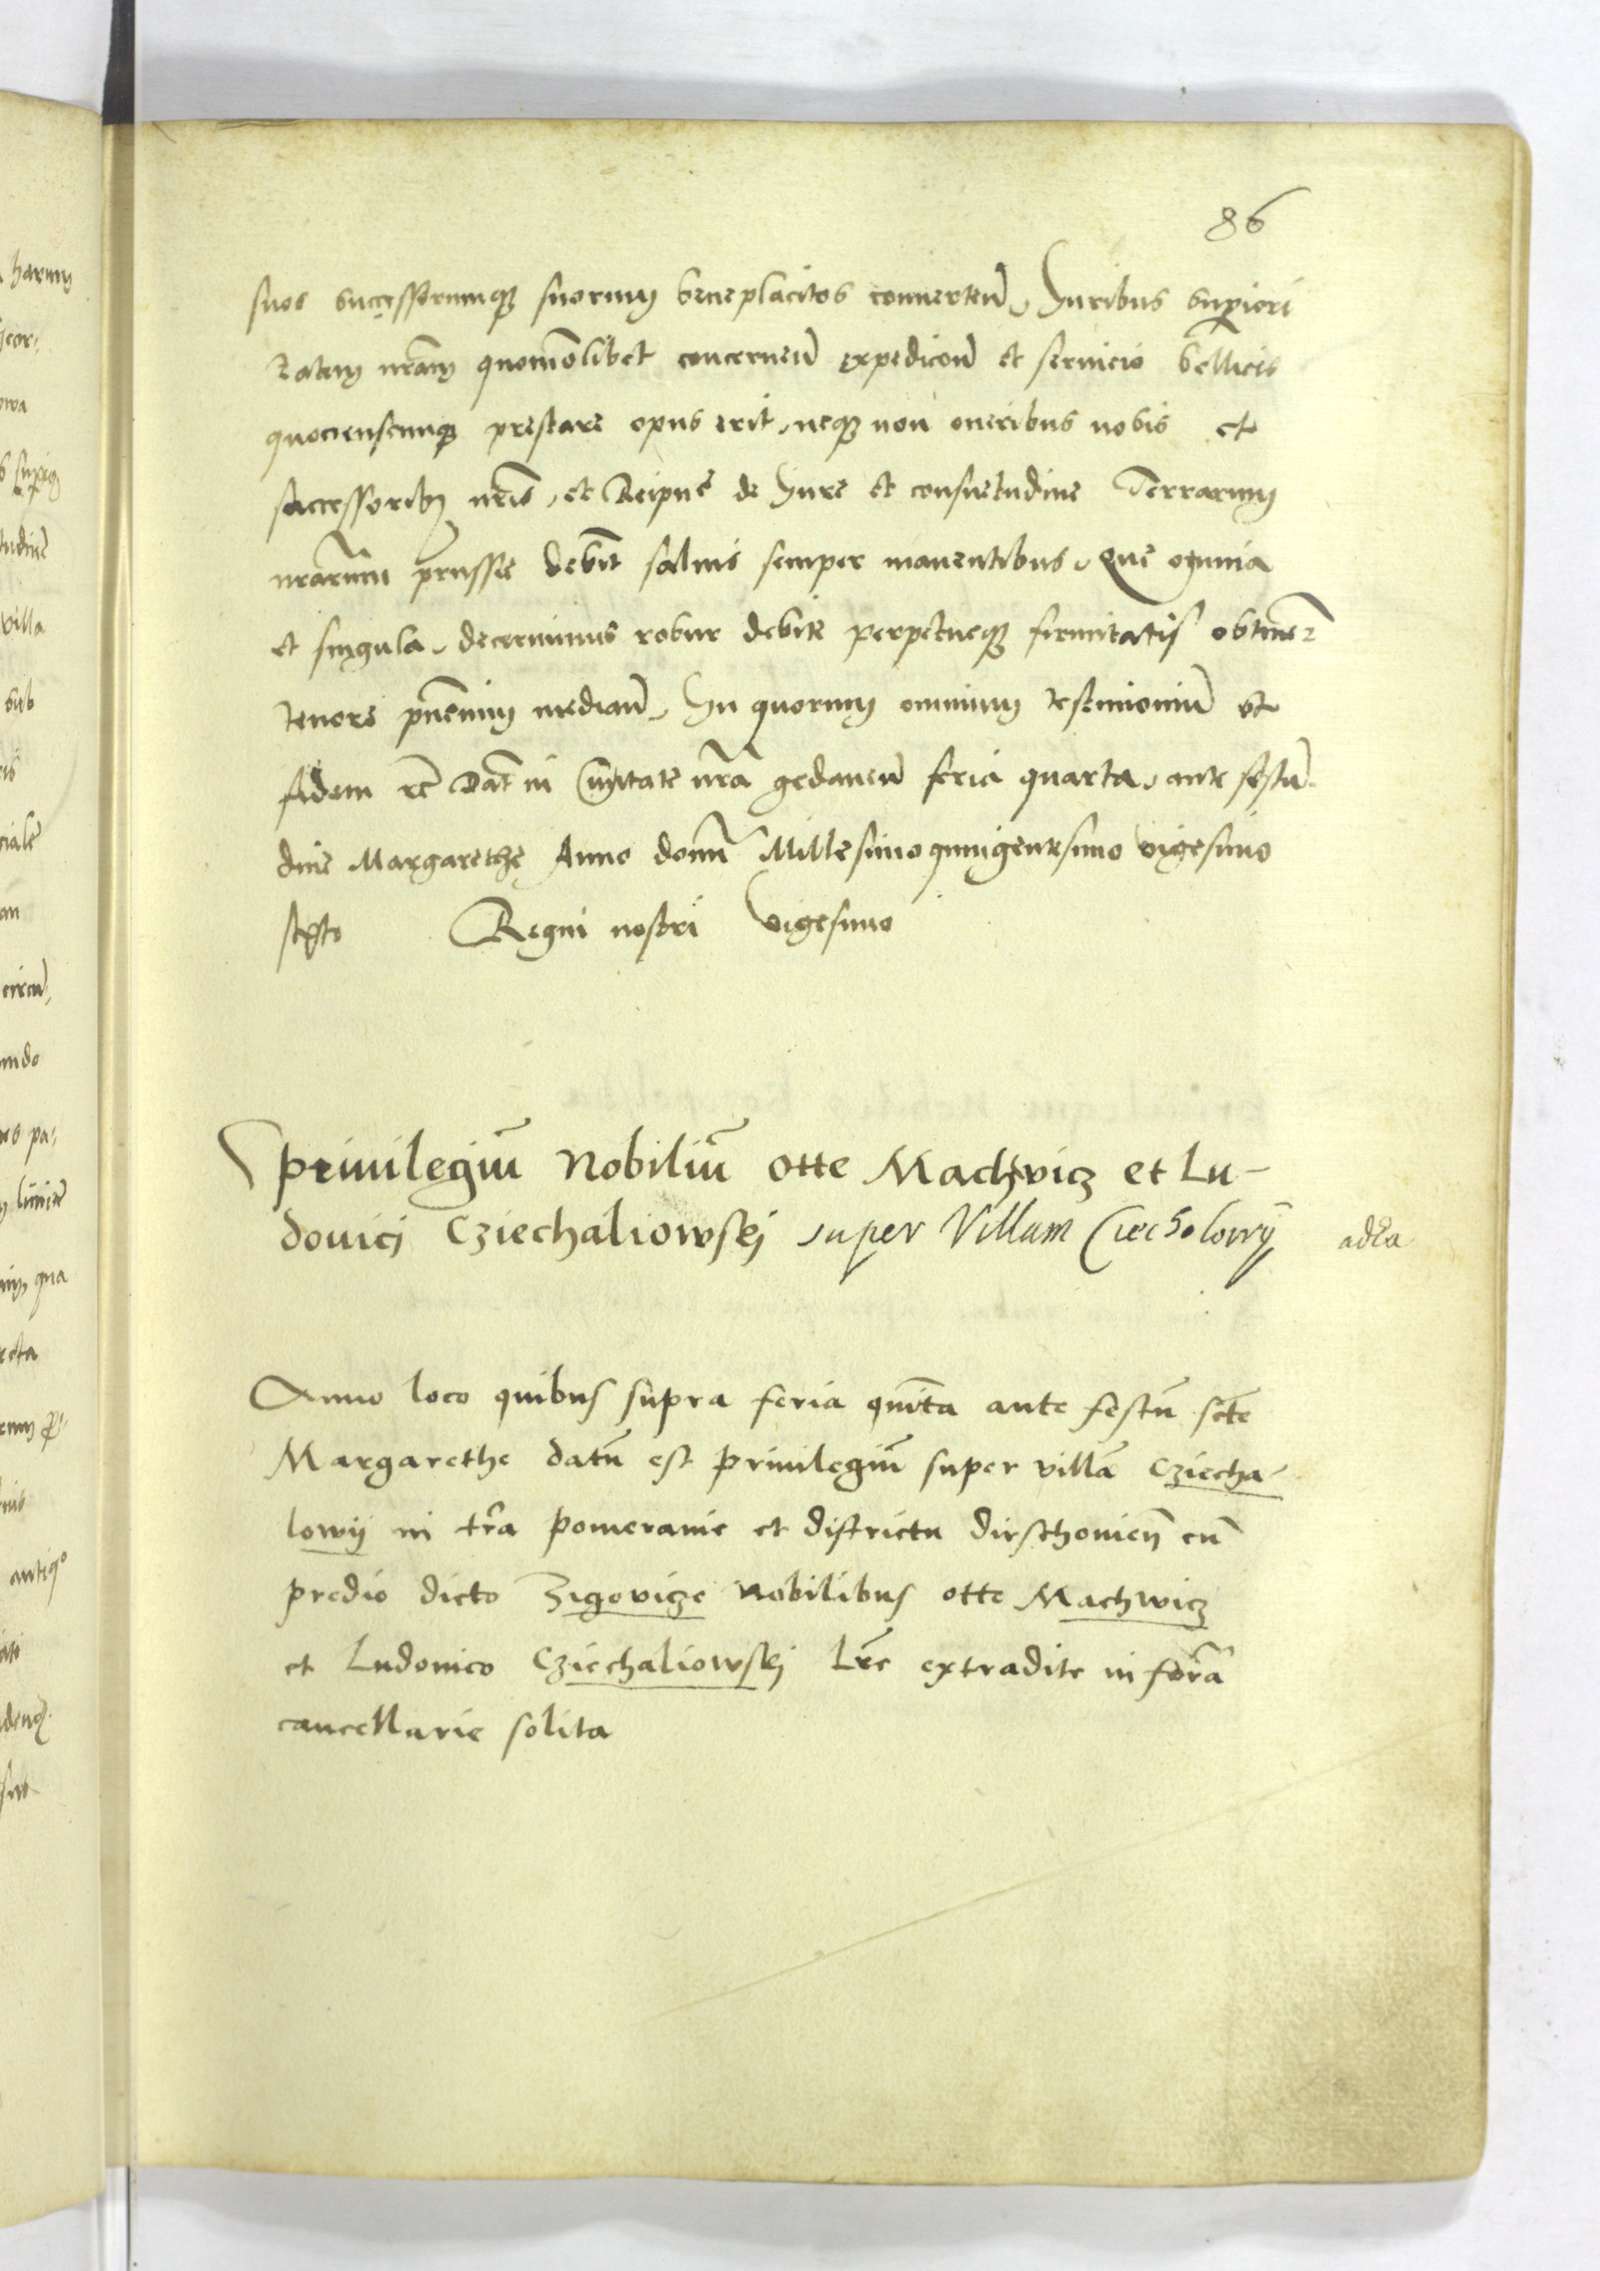 86
suos successorumque suorum beneplacitos convertend. Juribus superiori
tatem nram quomolibet concernen expedicon et servicio bellicis
quocienscunque prestare opus erit, neque non oneribus nobis et
successoribus nris, et Reipue de Jure et consuetudine Terrarum
nrarum prussie debit salvis semper manentibus. Que omnia
et singula decernimus robur debite perpetueque firmitatis obtiner
tenore pñcium median. In quorum omnium testimonium et
fidem etc Dat in Civitate nra gedanen feria quarta ante festu
dive Margarethe Anno domi Millesimo quingentesimo vigesimo
sexto Regni nostri vigesimo
privilegiu Nobiliu otte Machvicz et Lu-
dovici Cziechaliowskj super Villam Ciecholowy
Anno loco quibus supra feria quita ante festu scte
Margarethe datu est privilegiu super villa Cziecha-
lowij in tra pomeranie et districtu dirschovien cu
predio dicto Zigovicze Nobilibus otte Machwicz
et Ludovico Cziechaliowskj Lre extradite in forma
cancellarie solita